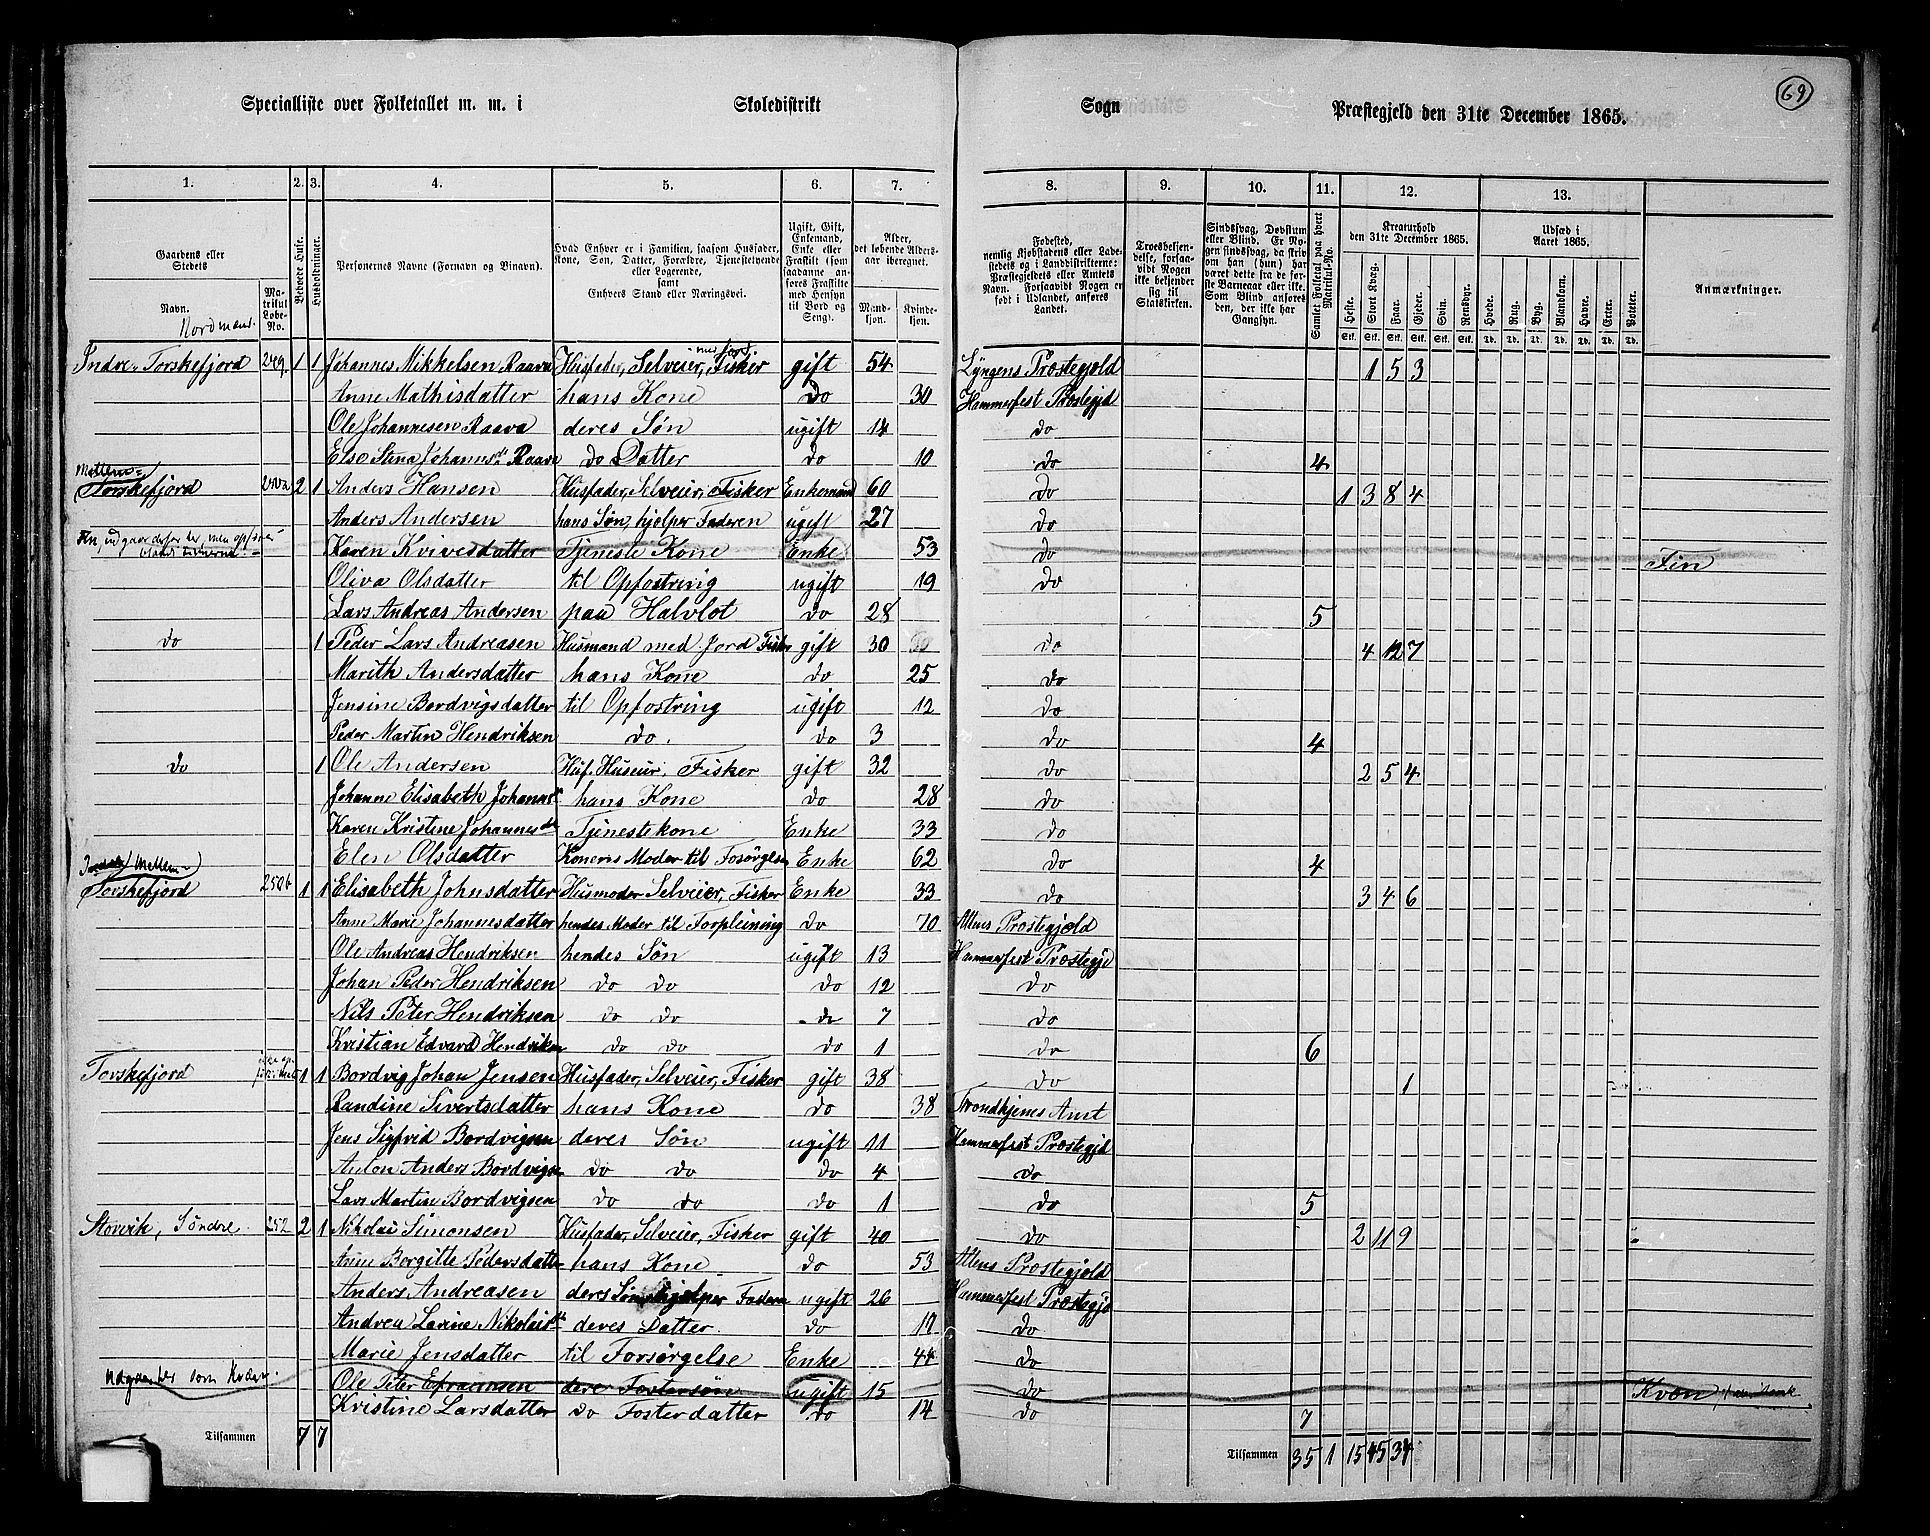 69
Specialliste over Folketallet m. m. i Skoledistrikt Sogn Præstegjeld den 31te December 1865.
1. 2. 3. 4. 5. 6. 7. 8. 9. 10. 11. 12. 13.
Gaardens eller Stedets Navn. Matrikul Løbe-No. Bebœede Huse. Husholdninger. Personernes Navne (Fornavn og Binavn). Hvad Enhver er i Familien, saasom Husfader, Kone, Søn, Datter, Forældre, Tjenestetyende eller Logerende, samt Enhvers Stand eller Næringsvei. Ugift, Gift, Enkemand, Enke eller Fraskilt (som saadanne anføres Fraskilte med Hensyn til Bord og Seng). Alder, det løbende Alders-aar iberegnet. Mandkjøn. Kvindekjøn. Fødested, nemlig Kjøbstadens eller Ladestedets og i Landdistrikterne: Præstegjeldets eller Amtets Navn. Forsaavidt Nogen er født i Udlandet, anføres Landet. Troesbekjendelse, forsaavidt Nogen ikke bekjender sig til Statskirken. Sindssvag, Døvstum eller Blind. Er Nogen sindssvag, da skriv om han (hun) har været dette fra de første Barneaar eller ikke. Som Blind anføres den, der ikke har Gangsyn. Samlet Folketal paa hvert Matrikul-No. Kreaturhold den 31te December 1865. Heste. Stort Kvæg. Faar. Gjeder. Svin. Rensdyr. Udsæd i Aaret 1865. Hvede. Rug. Byg. Blandkorn. Havre. Erter. Poteter. Anmærkninger.
Nordmænd.
Indre Torskefjord 249 1 1 Johannes Mikkelsen Raava Husfader, Selveier, Fisker gift 54 Lyngens Præstegjeld 1 5 3
Anne Mathisdatter hans Kone do 30 Hammerfest Præstegjd
Ole Johannesen Raava deres Søn ugift 14 do
Else Stina Johannsdt Raava do Datter do 10 do 4
Mellem-
Torskefjord 2 1 Anders Hansen Husfader, Selveier, Fisker Enkemand 60 do 1 3 8 4
Anders Andersen hans Søn, hjelper Faderen ugift 27 do
Karen Kvivesdatter Tjeneste Kone Enke 53 do Fin
Oliva Olsdatter til Opfostring ugift 19 do
Lars Andreas Andersen paa Halvlot do 28 5
do 1 Peder Lars Andreasen Husmand med Jord Fisker gift 30 do 4 12 7
Marith Andersdatter hans Kone do 25 do
Jensine Bordvigsdatter til Opfostring ugift 12 do
Peder Martin Hendriksen do. do 3 do 4
do 1 Ole Andersen Huf. Huseier, Fisker gift 32 do 2 5 4
Johanne Elisabeth Johannsdt hans Kone do 28 do
Karen Kristine Johannesdt Tjenestekone Enke 33 do
Elen Olsdatter Konens Moder til Fosørgelse Enke 62 do 4
Mellem-
Torskefjord 250b 1 1 Elisabeth Johnsdatter Husmoder Selveier, Fisker Enke 33 do 3 4 6
Anne Marie Johannesdatter hendes Moder til Forpleining do 70 Altens Præstegjeld
Ole Andreas Hendriksen hendes Søn ugift 13 Hammerfest Præstegje
Johan Peder Hendriksen do do do 12 do
Nils Peter Hendriksen do do do 7 do
Kristian Edvard Hendriksen do do do 1 do 6
Torskefjord 1 1 Bordvig Johan Jensen Husfader, Selveier, Fisker gift 38 do 1
Randine Sivertsdatter hans Kone do 38 Trondhjems Amt
Jens Sigfrid Bordvigsen deres Søn ugift 11 Hammerfest Præstegjd
Anton Anders Bordvigsen do do do 4 do
Lars Martin Bordvigsen do do do 1 do 5
Storvik, Søndre 252 2 1 Nikolai Simonsen Husfader, Selveier, Fisker gift 40 do 2 11 9
Anne Borgitte Pedersdatter hans Kone do 53 Altens Præstegjeld
Anders Andreasen deres Søn hjelper Fadern ugift 26 Hammerfest Præstegje
Andrea Lavine Nikolaisdt deres Datter do 12 do
Marie Jensdatter til Forsørgelse Enke 44 do
Udgaar her som Kvæn. Ole Peter Efraimsen dere Fostersøn ugift 15 do Kvæn
Kristine Larsdatter do Fosterdatter do 14 do 7
Tilsammen 7 7 Tilsammen 35 1 15 45 34